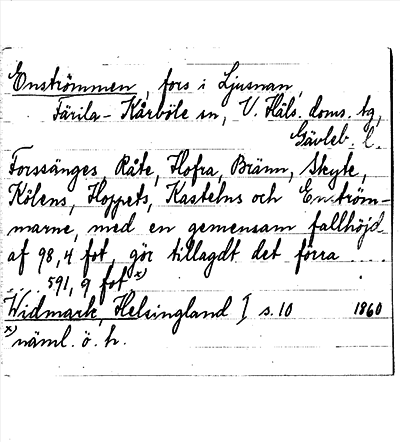 Enströmmen, fors i Ljusnan,
Färila-Kårböle sn, V. Häls. doms. tg,
Gävleb. l.
Forssänges, Råte, Hofra, Bränn, Skyte,
Kölens, Hoppets, Kastelns och Enström-
marne, med en gemensam fallhöjd
af 98,4 fot, gör tillagdt det förra ....
.... 591,9 fot x)
Widmark, Helsingland I s. 10 1860
x) näml. ö. h.